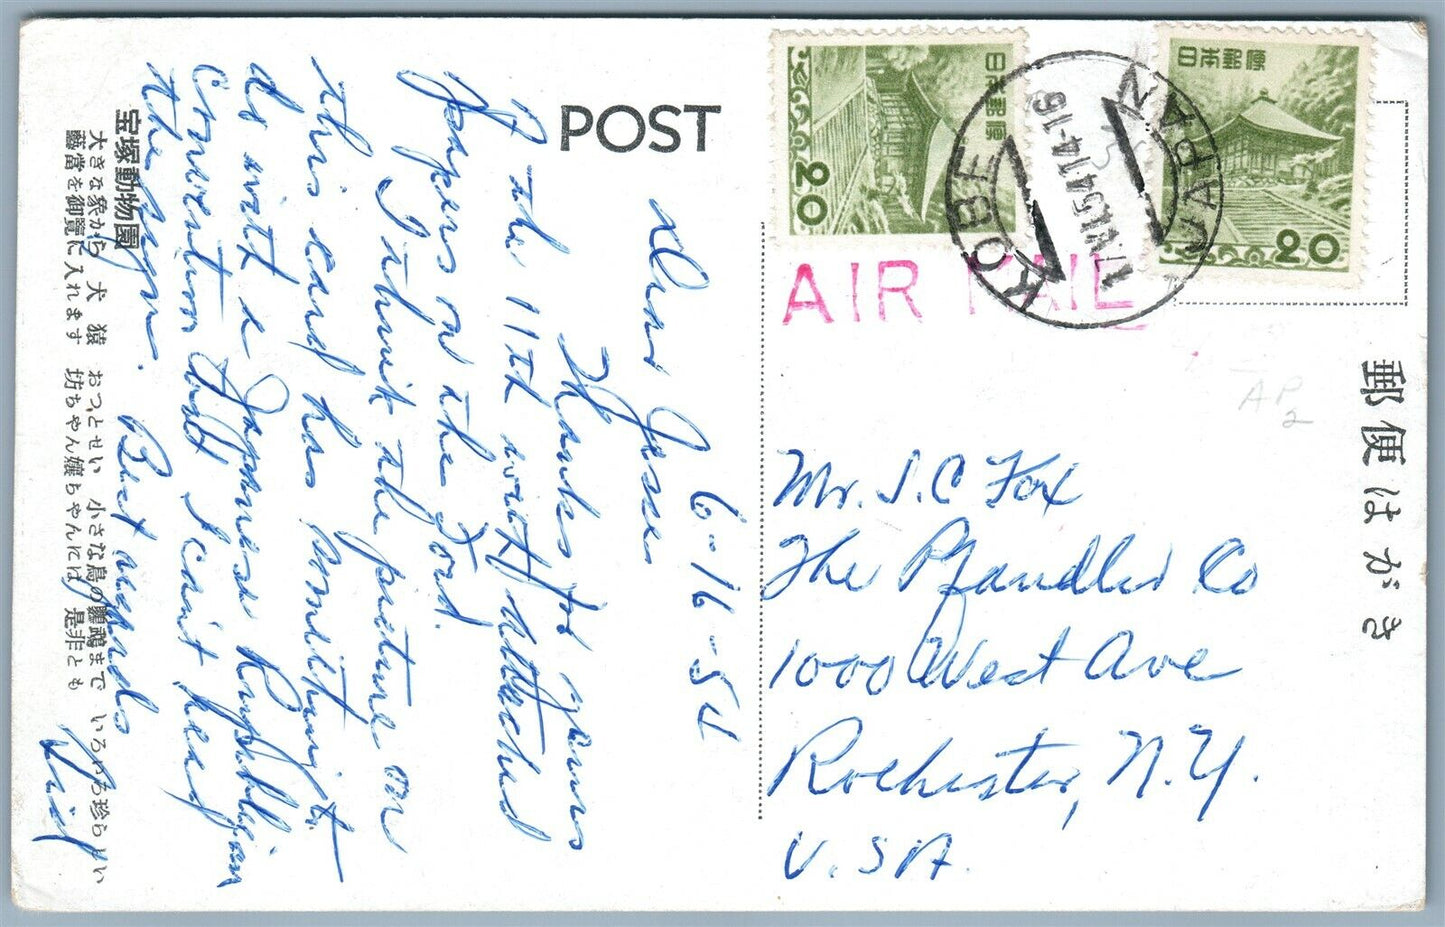 POST
6-16-54
Dear Jesse
Thanks for yours
of the 11th with attached
papers on the Ford.
I think the picture on
this card has something
to do with a Japanese Republican
Convention but I can't read
the lingo.
Best regards
宝塚動物園
大きな象から 犬 猿 おっとせい 小さな鳥の鸚鵡まで いろいろ珍らしい
藝當を御覽に入れます 坊ちやん嬢ちやんには 是非とも
日本郵便
20
日本郵便
20
KOBE JAPAN
17.VI.54 14-16
AIR MAIL
AP
2
郵便はがき
Mr. J. C Fox
The Pfaudler Co
1000 West Ave
Rochester, N.Y.
U.S.A.